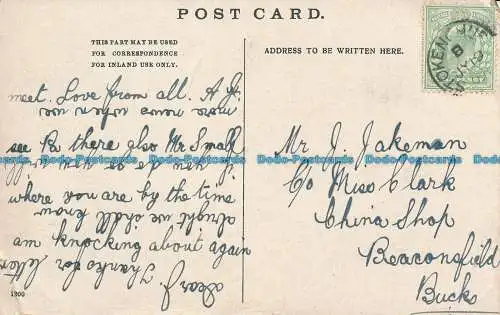 POST CARD.
THIS PART MAY BE USED
FOR CORRESPONDENCE
FOR INLAND USE ONLY.
Dear J.
Thanks for letter
am knocking about again
alright we shall know
where you are by the time
see B there also Mr Small
more news when we
meet. Love from all. A.J.
1200
ADDRESS TO BE WRITTEN HERE.
Mr J. Jakeman
C/o Miss Clark
China Shop
Beaconsfield
Bucks
Dodo-Postcards Dodo-Postcards Dodo-Postcards Dodo-Postcards